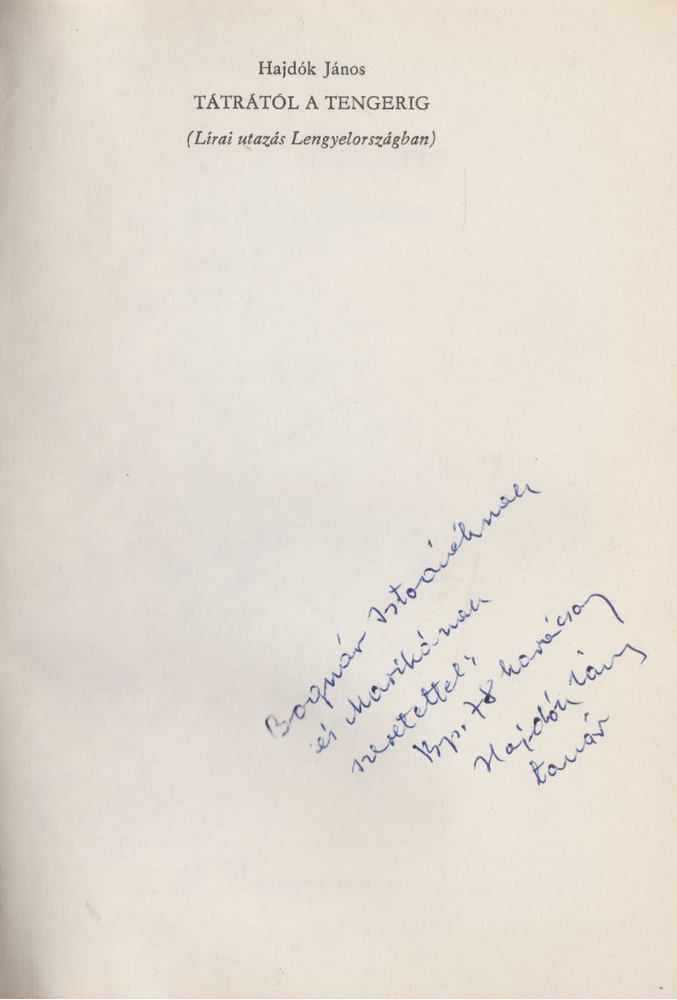 Hajdók János
TÁTRÁTÓL A TENGERIG
(Lírai utazás Lengyelországban)
Bognár Istvánéknak
és Marikának
szeretettel:
Bp. 78 karácsony
Hajdók János
tanár